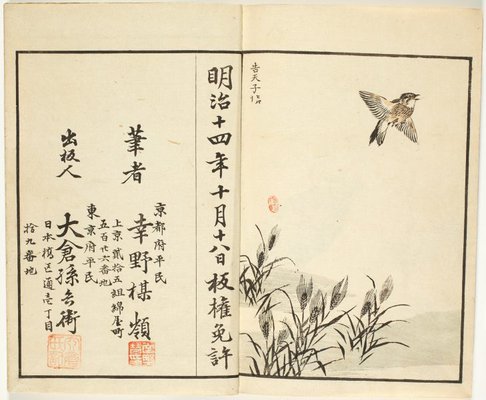 告天子
明治十四年十月十八日板權免許
筆者
京都府平民
上京貳拾五組錦屋町
五百廿六番地
幸野楳嶺
出板人
東京府平民
大倉孫兵衛
日本橋区通壱丁目
拾九番地